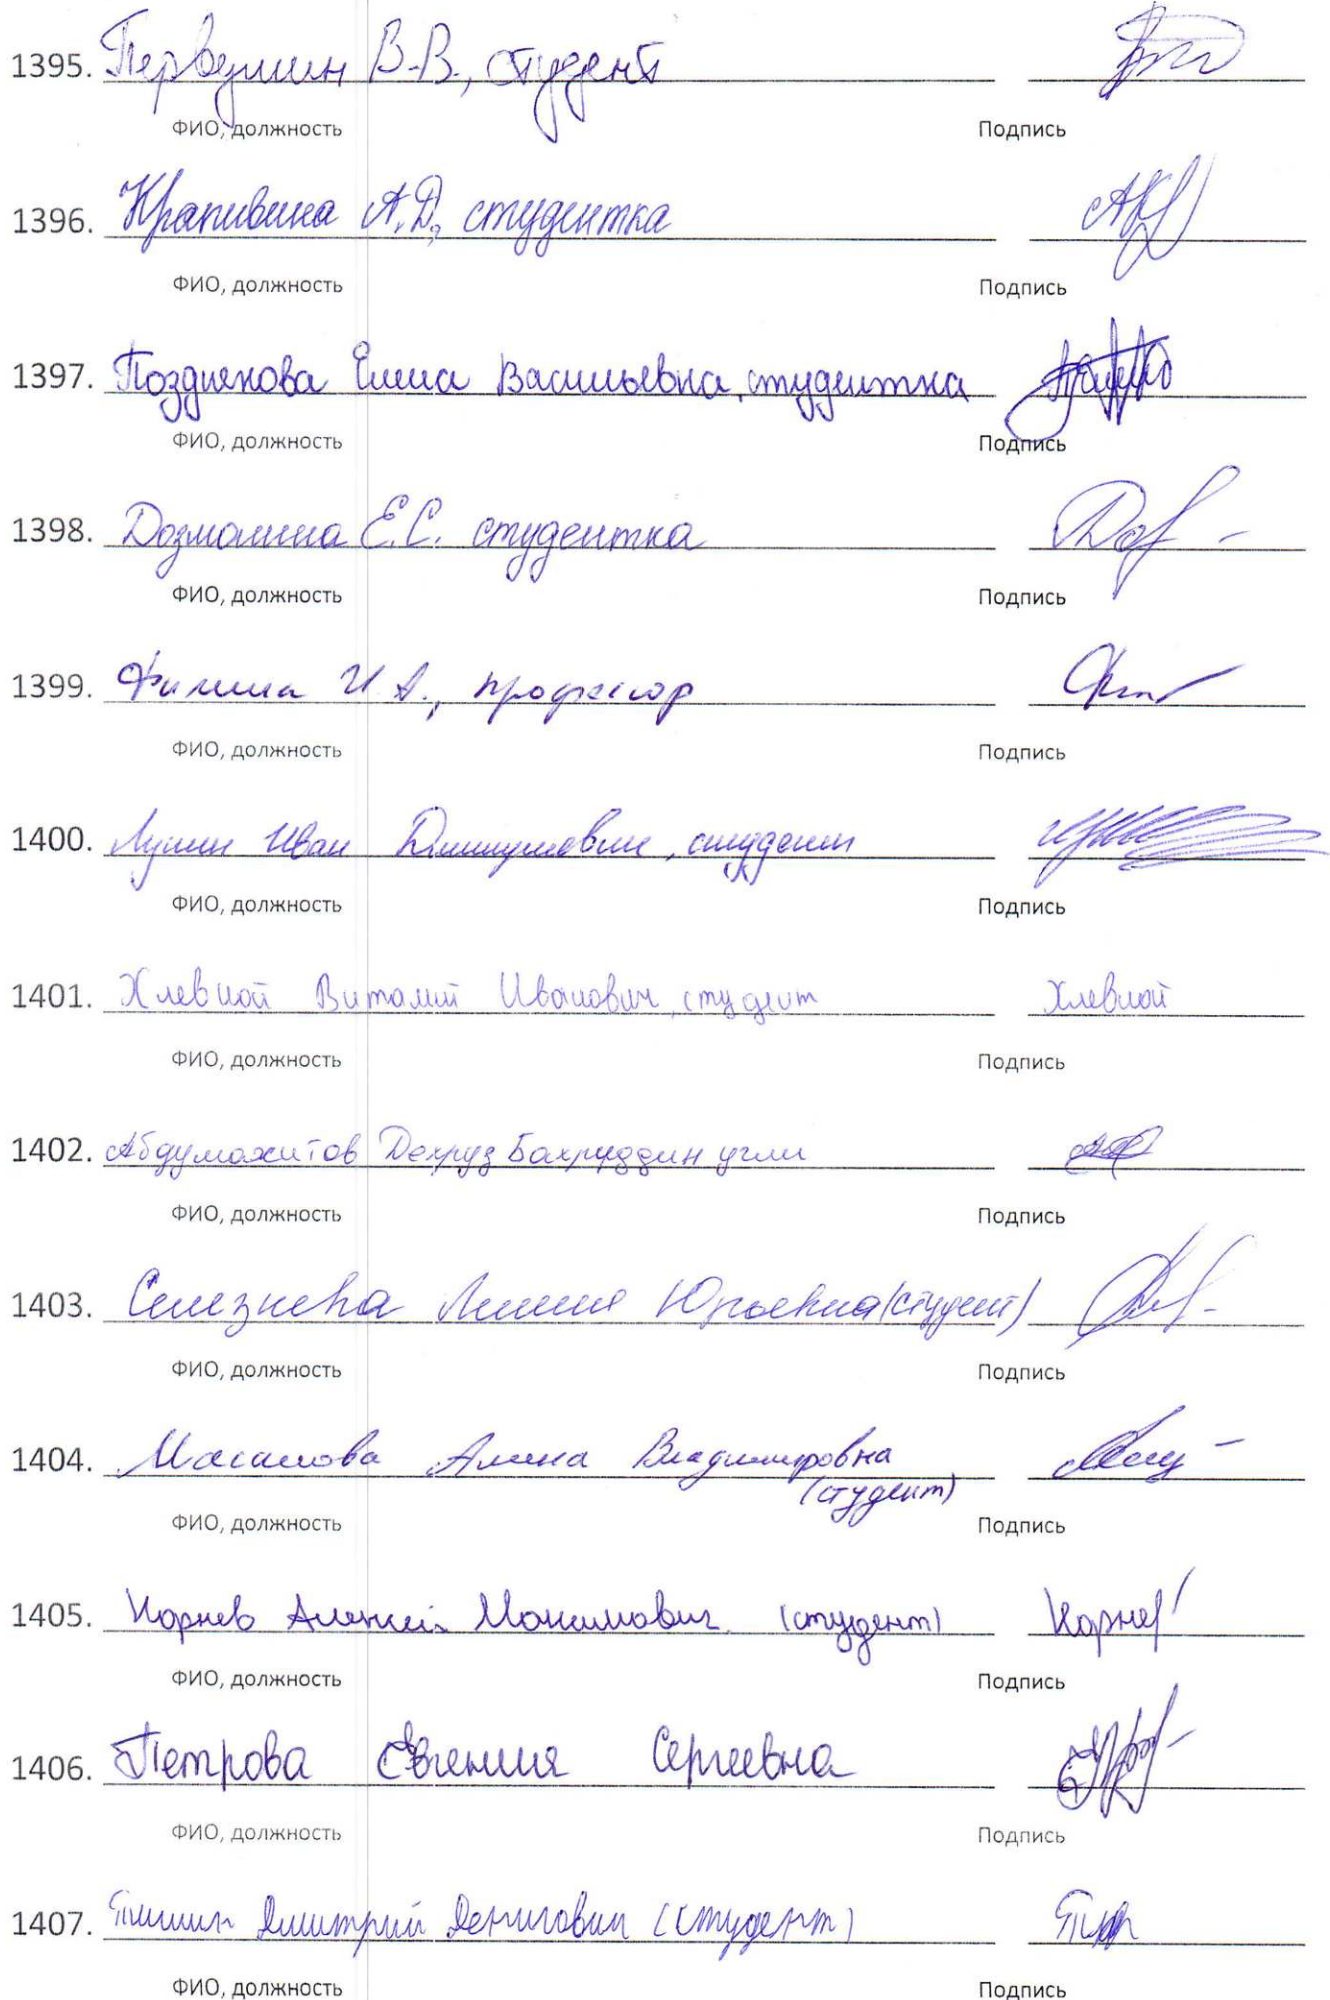 1395. Первушин В.В., студент
ФИО, должность Подпись
1396. Крапивина А.Д., студентка
ФИО, должность Подпись
1397. Позднякова Елена Васильевна, студентка
ФИО, должность Подпись
1398. Дозмалина Е.С. студентка
ФИО, должность Подпись
1399. И.А., профессор
ФИО, должность Подпись
1400. Иван студент
ФИО, должность Подпись
1401. Хлевной Виталий Иванович, студент Хлевной
ФИО, должность Подпись
1402. Абдумажитов Бахруддин угли
ФИО, должность Подпись
1403. Селезнева Лилия Юрьевна (студент)
ФИО, должность Подпись
1404. Масалова Алина Владимировна
(студент)
ФИО, должность Подпись
1405. Корнев Алексей Максимович (студент) Корнев
ФИО, должность Подпись
1406. Петрова Евгения Сергеевна
ФИО, должность Подпись
1407. Дмитрий Денисович (студент)
ФИО, должность Подпись